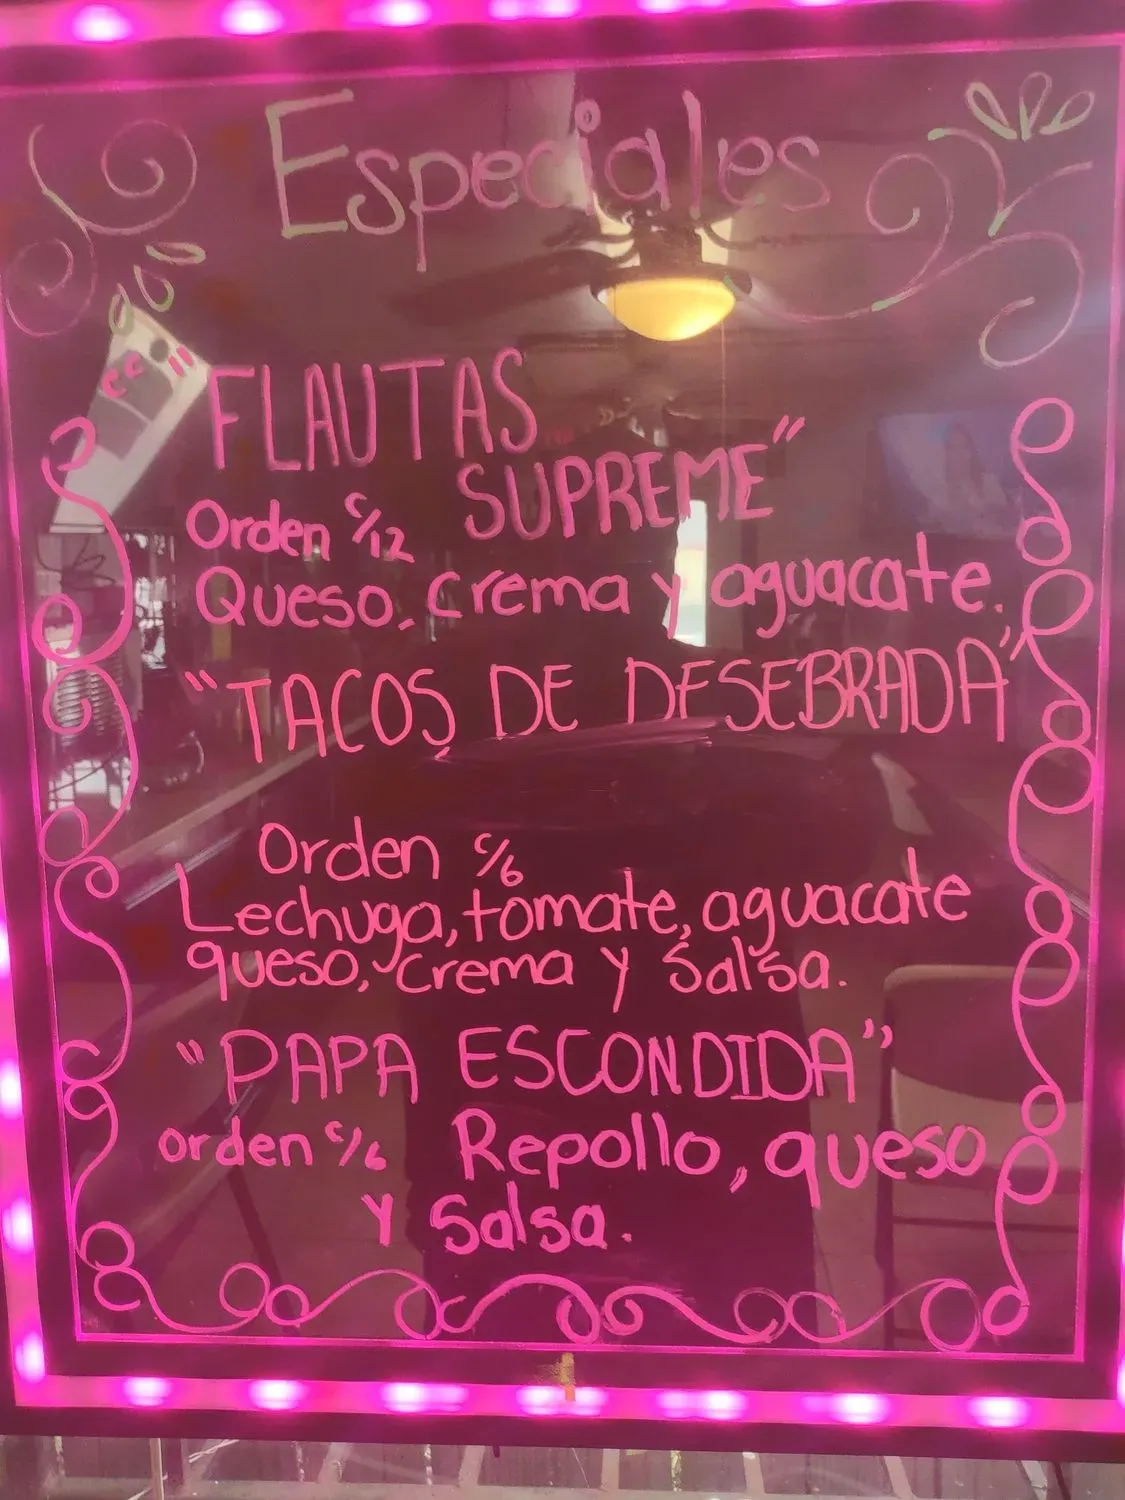 Especiales
"FLAUTAS
SUPREME"
Orden c/12
Queso, crema y aguacate.
"TACOS DE DESEBRADA"
Orden c/6
Lechuga, tomate, aguacate
queso, crema y salsa.
"PAPA ESCONDIDA"
orden c/6 Repollo, queso
y salsa.